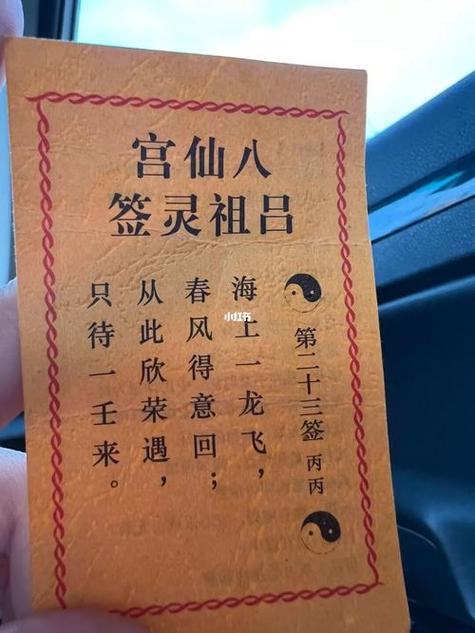 宫仙八
签灵祖吕
第二十三签 丙丙
海上一龙飞，
春风得意回；
从此欣荣遇，
只待一壬来。
小红书